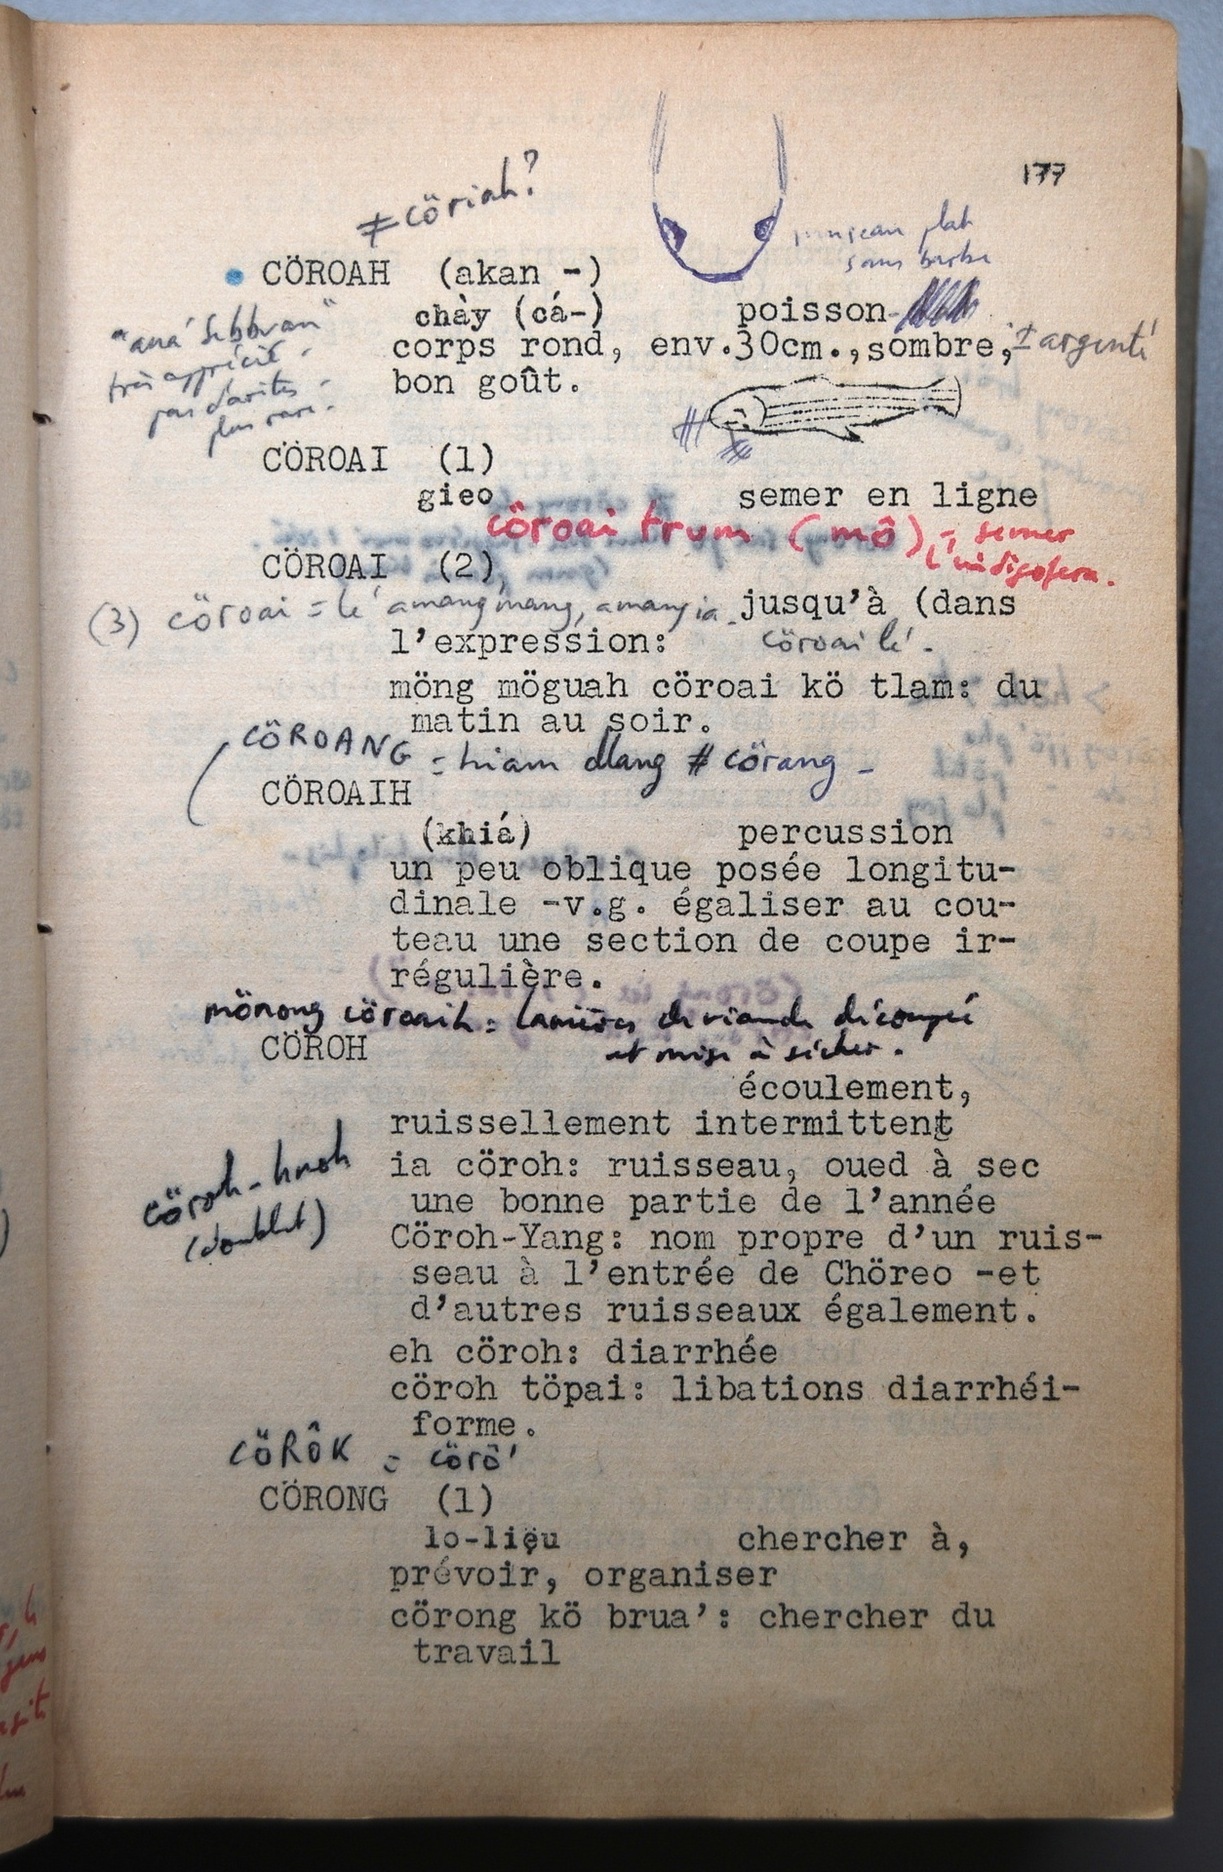 177
≠ cöriah?
plat
sans barbe
CÖROAH (akan -)
chày (cá-) poisson-
corps rond, env.30cm.,sombre, ± argenté
bon goût.
très apprécié -
pas d'arêtes -
plus rare.
CÖROAI (1)
gieo semer en ligne
cöroai trum (mô) = semer
l'indigofera.
CÖROAI (2)
(3) cöroai = lé amang inang, amang ia.
jusqu'à (dans
l'expression: cöroai lé -
möng möguah cöroai kö tlam: du
matin au soir.
CÖROANG = hiam dlang # cörang -
CÖROAIH
(khiá) percussion
un peu oblique posée longitu-
dinale -v.g. égaliser au cou-
teau une section de coupe ir-
régulière.
mönong cöroaih = lanières de viande découpée
et mise à sécher.
CÖROH
écoulement,
ruissellement intermittent
cöroh - hroh
(doublet)
ia cöroh: ruisseau, oued à sec
une bonne partie de l'année
Cöroh-Yang: nom propre d'un ruis-
seau à l'entrée de Chöreo -et
d'autres ruisseaux également.
eh cöroh: diarrhée
cöroh töpai: libations diarrhéi-
forme.
CÖRÔK = cörô'
CÖRONG (1)
lo-liệu chercher à,
prévoir, organiser
cörong kö brua': chercher du
travail